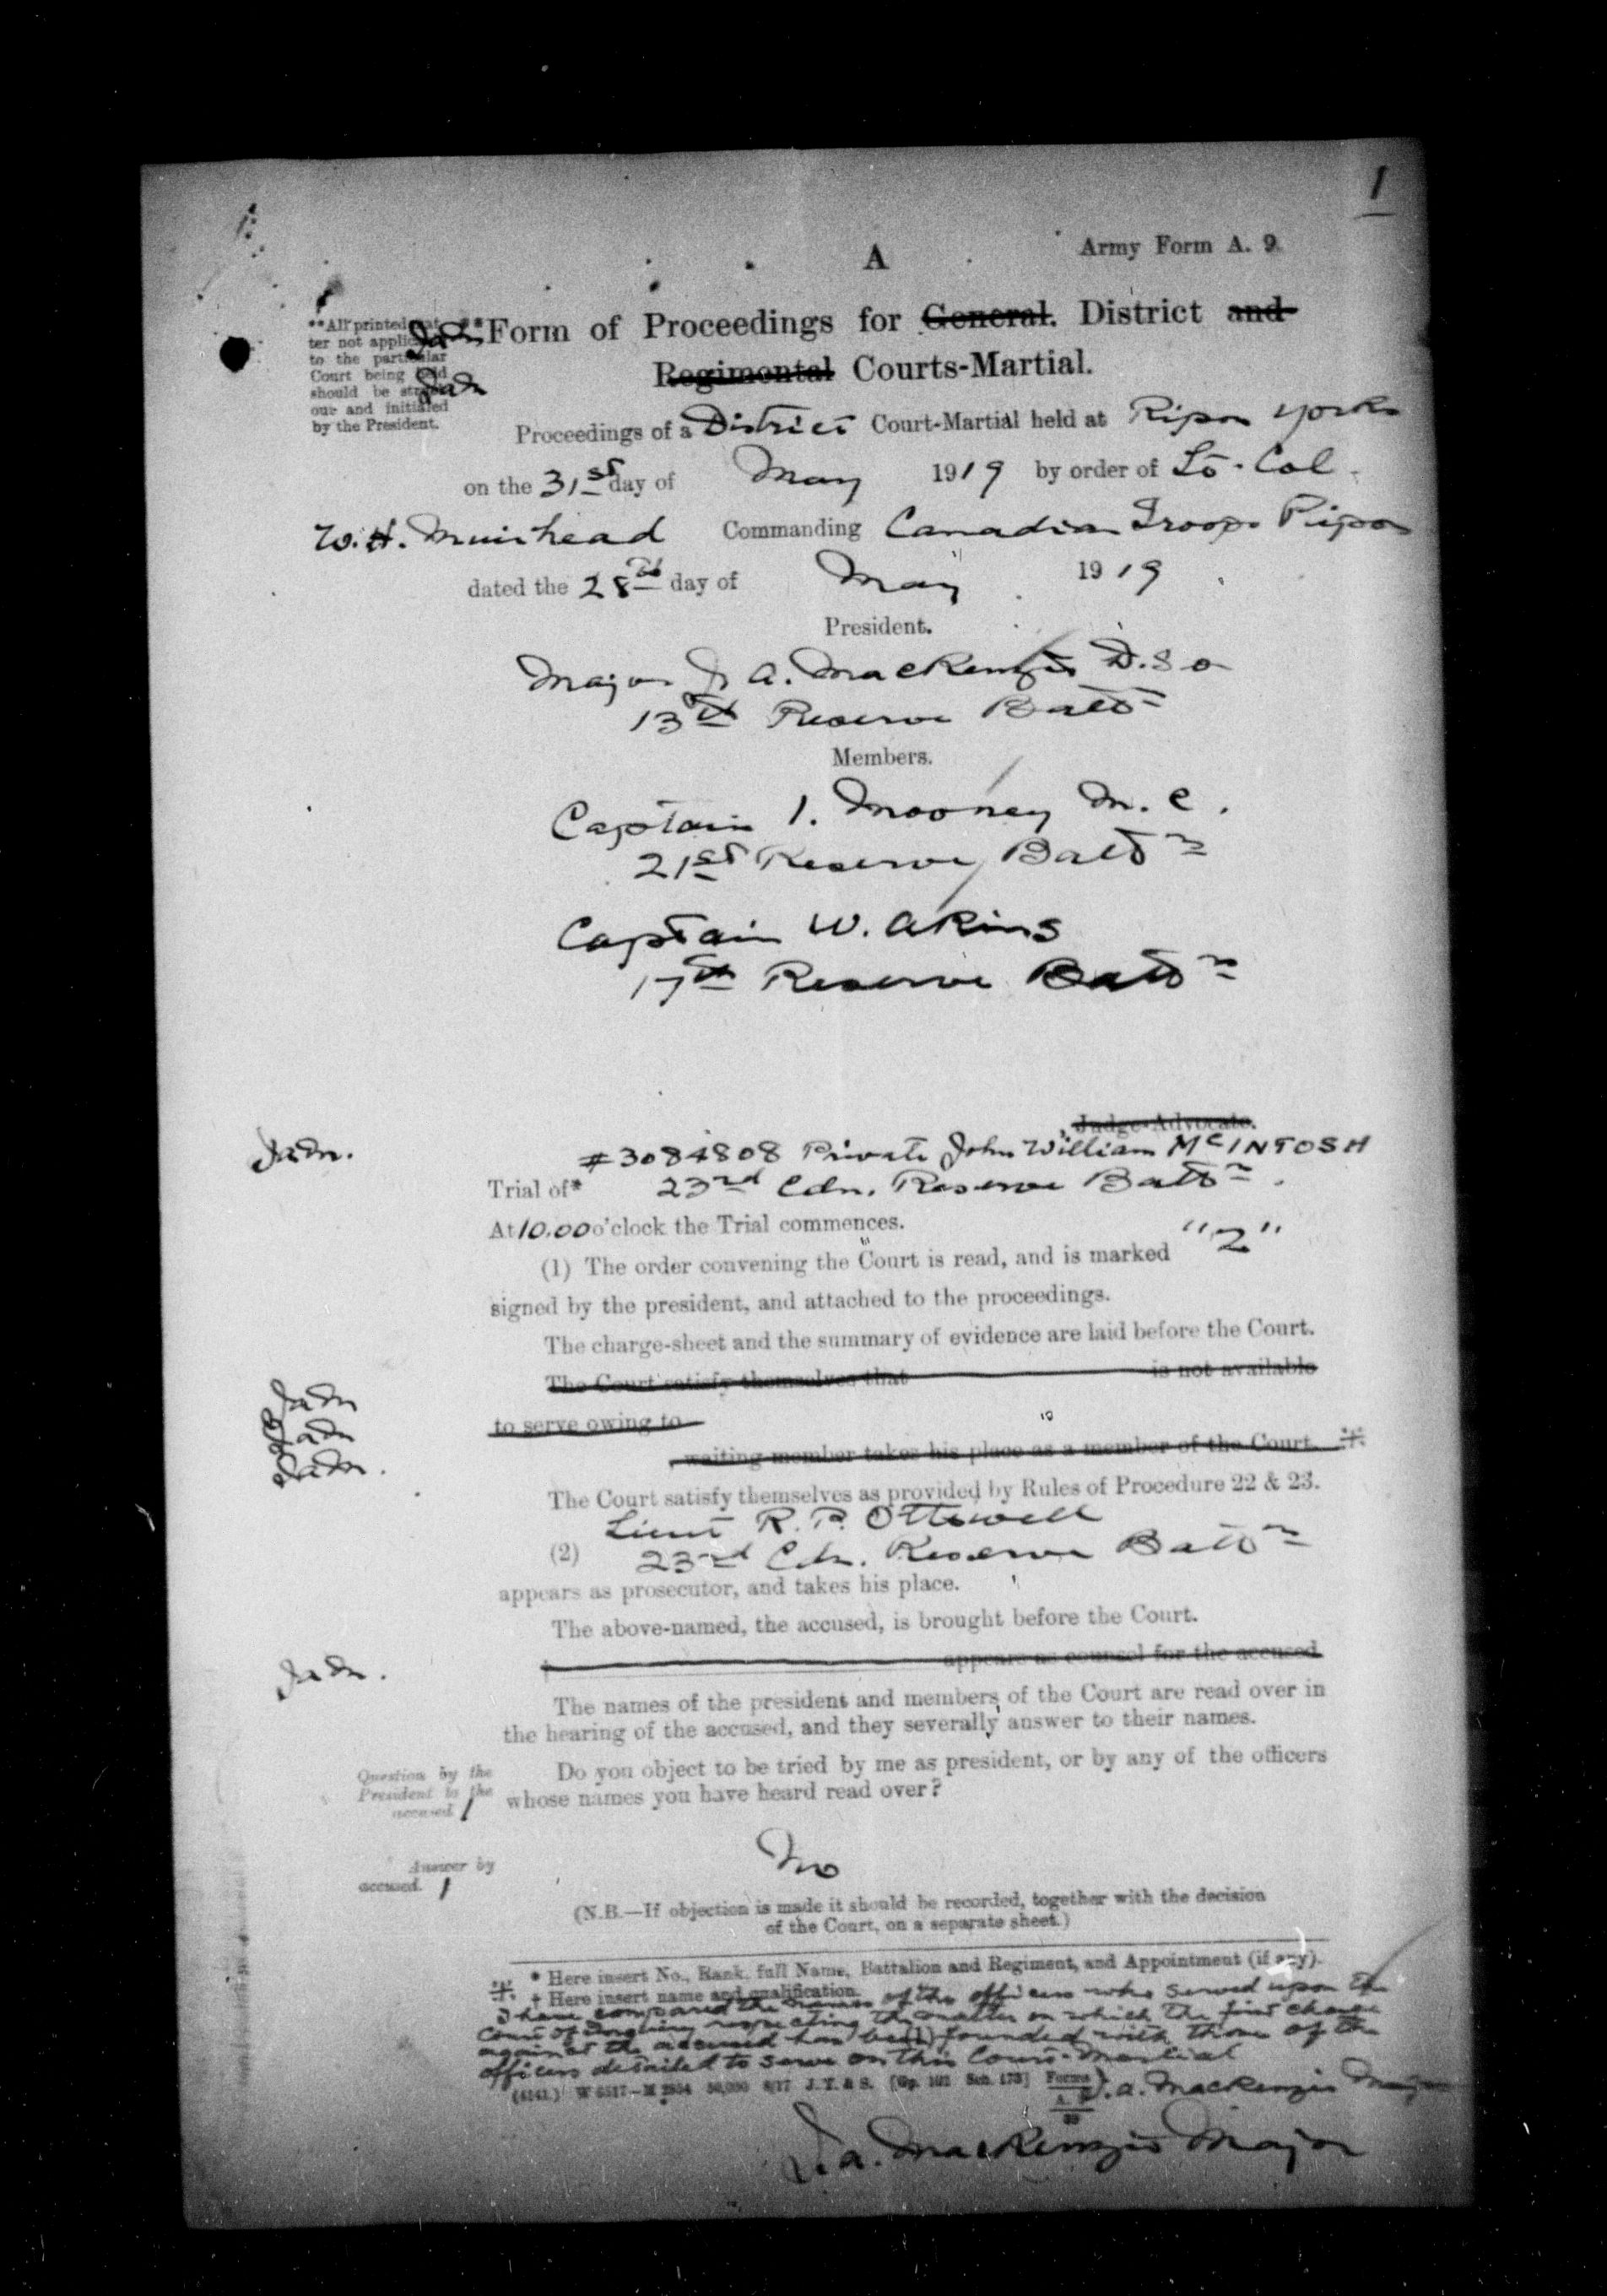 1
A
Army Form A. 9.
**Form of Proceedings for General. District and
Regimental Courts-Martial.
**All printed mat-
ter not applicable
to the particular
Court being held
should be struck
out and initialed
by the President.
Proceedings of a District Court-Martial held at Ripon Yorks
on the 31st day of May 1919 by order of Lt. Col.
W.H. Muirhead Commanding Canadian Troops Ripon
dated the 28th day of May 1919
President.
Major J. A. MacKenzie D.S.O
13th Reserve Battn
Members.
Captain I. Mooney M.C.
21st Reserve Battn
Captain W. Akins
17th Reserve Battn
, Judge-Advocate.
#3084808 Private John William McINTOSH
Trial of* 23rd Cdn. Reserve Battn.
At 10.00 o'clock the Trial commences.
(1) The order convening the Court is read, and is marked "2"
signed by the president, and attached to the proceedings.
The charge-sheet and the summary of evidence are laid before the Court.
The Court satisfy themselves that is not available
to serve owing to
, waiting member takes his place as a member of the Court.
The Court satisfy themselves as provided by Rules of Procedure 22 & 23.
Lieut R. P. Ottewell
(2) 23rd Cdn. Reserve Battn
appears as prosecutor, and takes his place.
The above-named, the accused, is brought before the Court.
appears as counsel for the accused.
The names of the president and members of the Court are read over in
the hearing of the accused, and they severally answer to their names.
Question by the
President to the
accused.
Do you object to be tried by me as president, or by any of the officers
whose names you have heard read over?
Answer by
accused.
No
(N.B.—If objection is made it should be recorded, together with the decision
of the Court, on a separate sheet.)
* Here insert No., Rank, full Name, Battalion and Regiment, and Appointment (if any).
† Here insert name and qualification.
I have compared the names of the officers who served upon the
Court of Inquiry respecting the matter on which the first charge
against the accused has been founded with those of the
officers detailed to serve on this Court-Martial
J. A. MacKenzie Major
J. A. MacKenzie Major